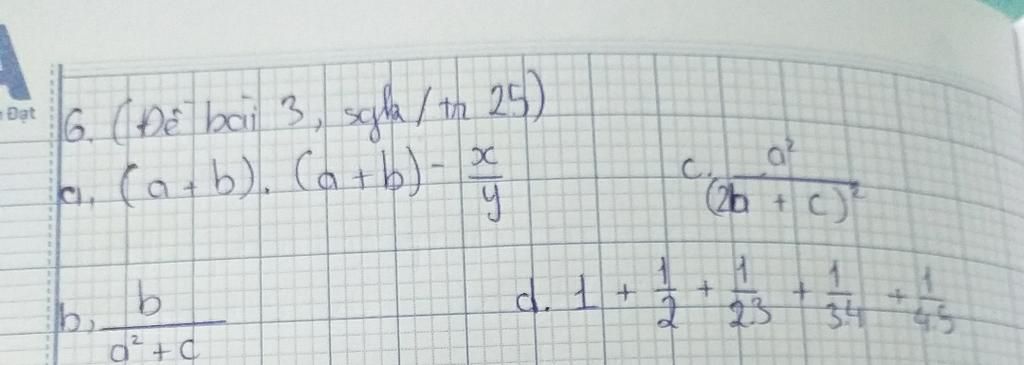 Đạt
6. (Đề bài 3, sgk / tr 25)
a. (a + b). (a + b) - x/y
c. a²/(2b + c)²
b, b/(a² + c)
d. 1 + 1/2 + 1/23 + 1/34 + 1/45